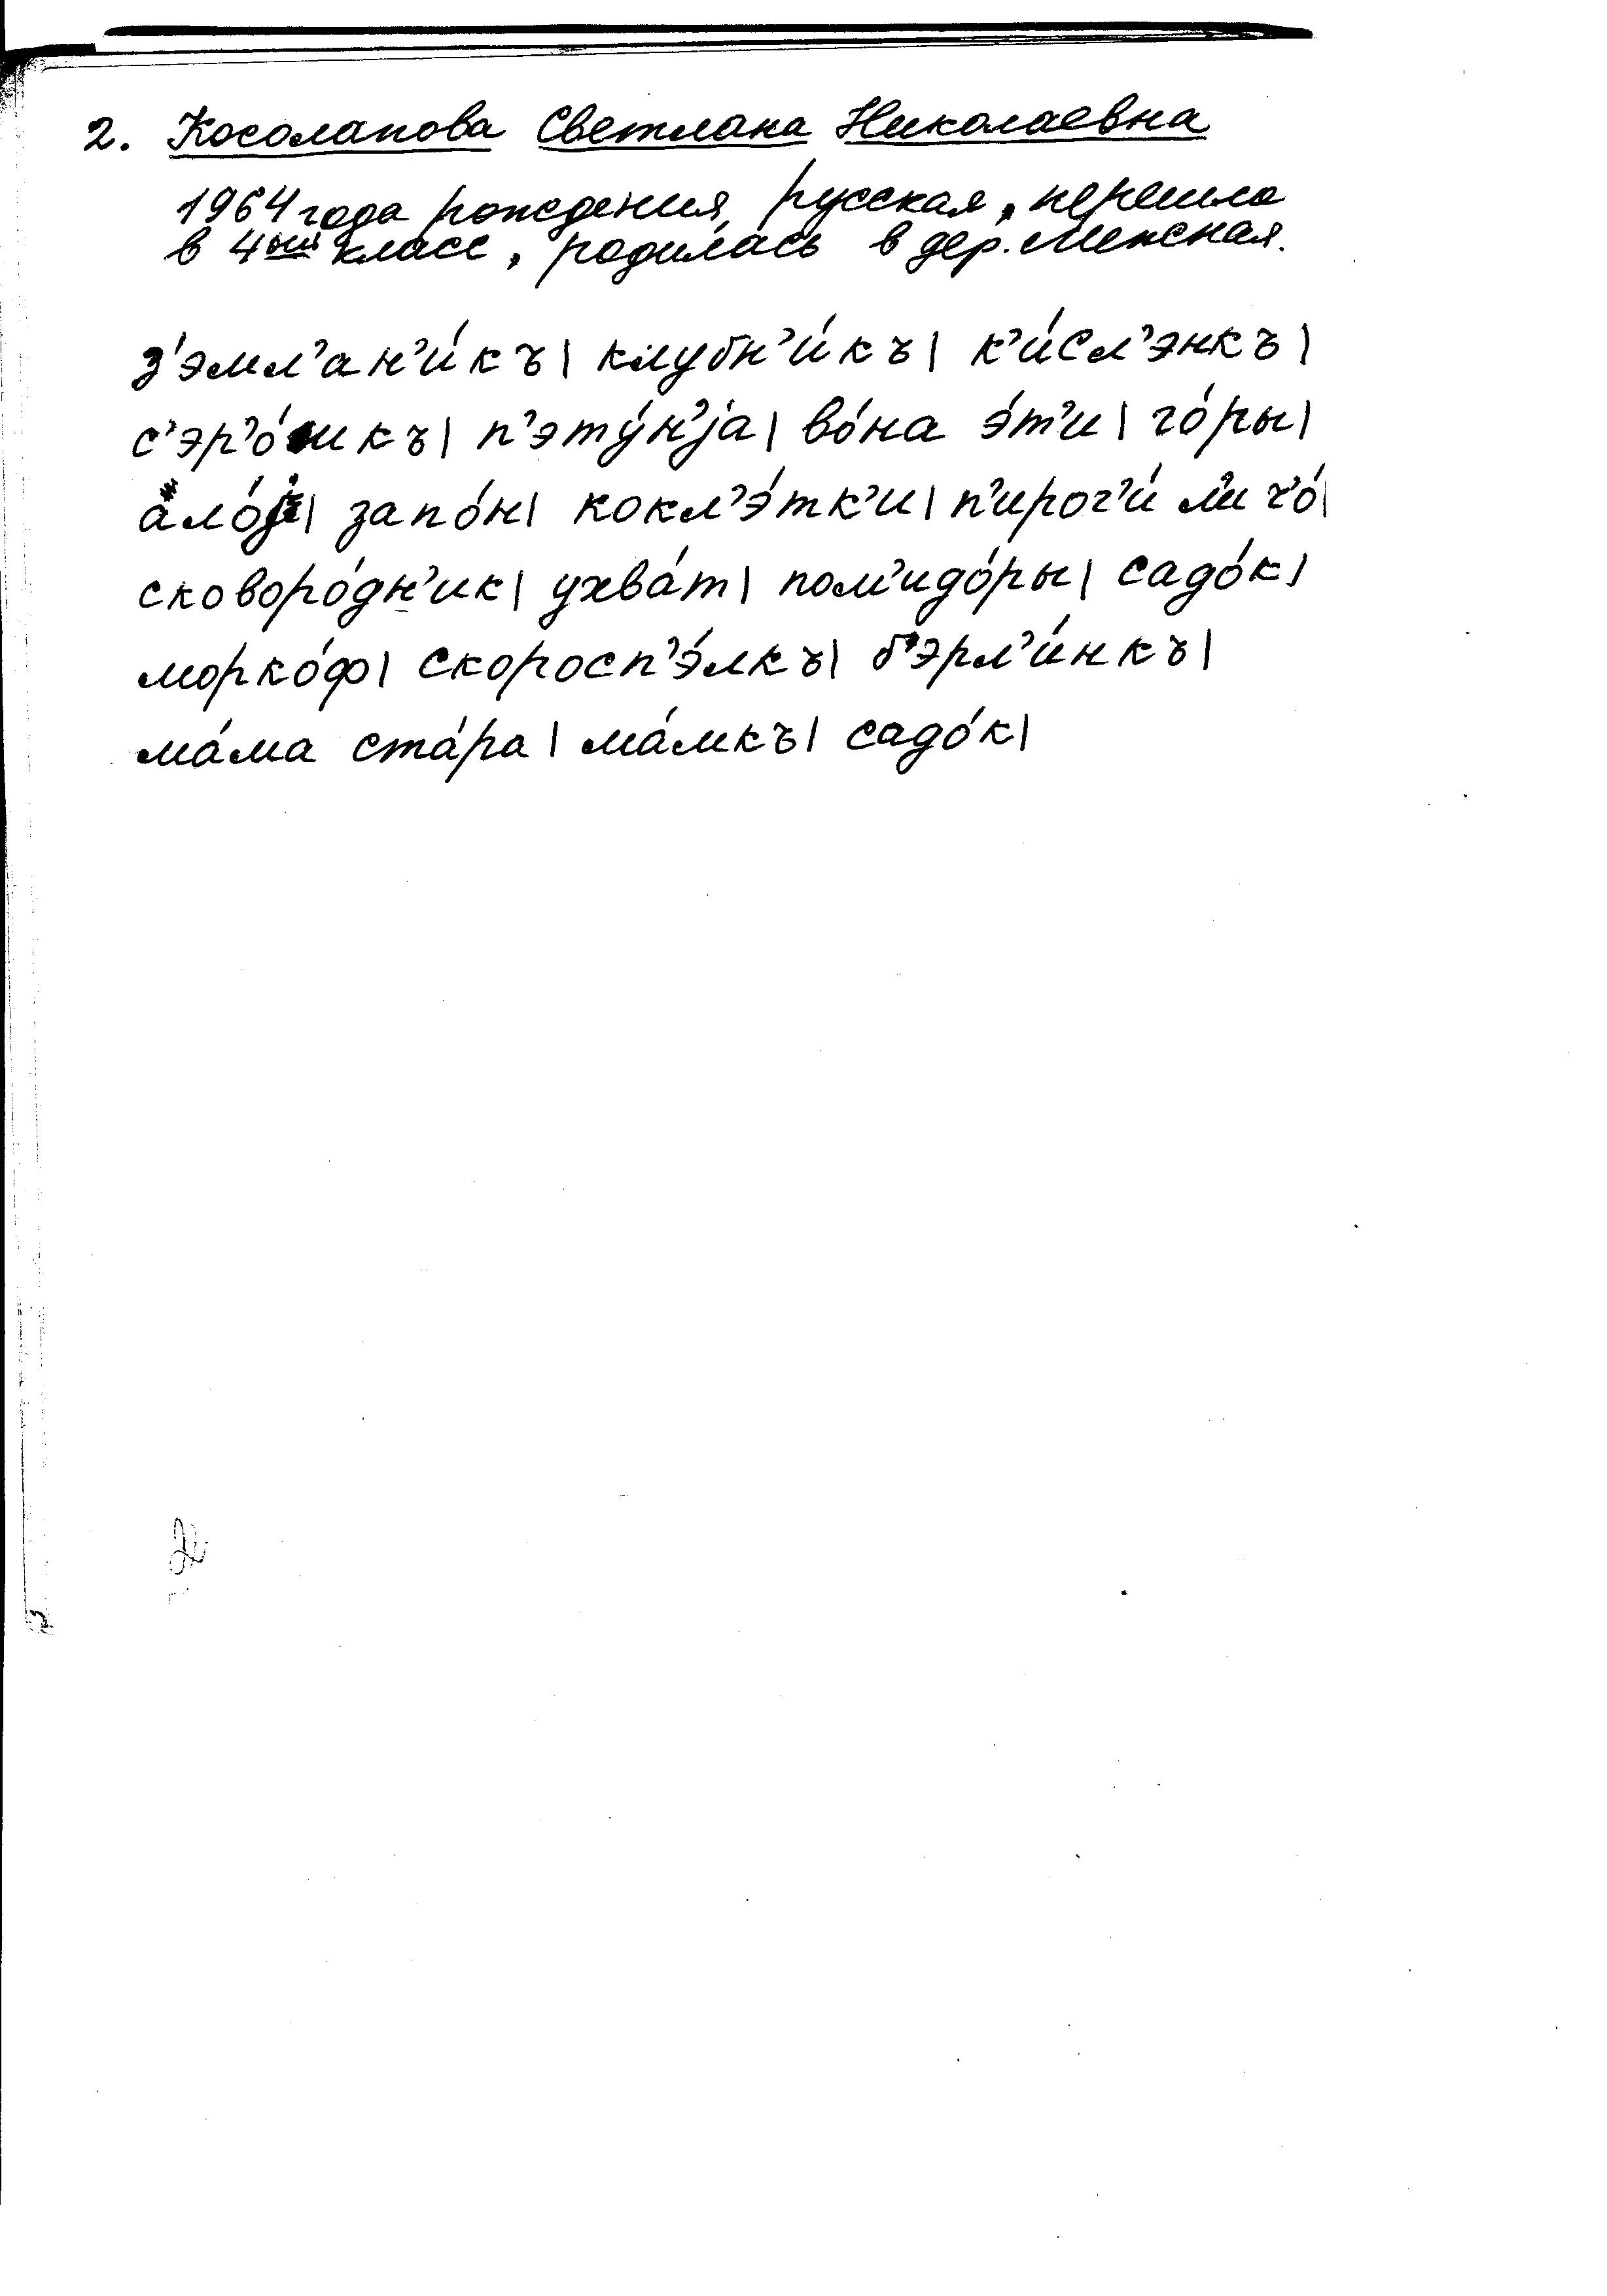 2. Косолапова Светлана Николаевна
1964 года рождения, русская, перешла
в 4ый класс, родилась в дер.
з'эмл'ан'и́къ| клубн'и́къ| к'и́сл'энкъ|
с'эр'о́шкъ| п'эту́н'jа| во́на э́т'и| го́ры|
запо́н| кокл'э́тк'и| п'ирог'и́ л'и ч'о́|
сковоро́дн'ик| ухва́т| пом'идо́ры| садо́к|
морко́ф| скоросп'э́лкъ| б'эрл'и́нкъ|
ма́ма ста́ра| ма́мкъ| садо́к|